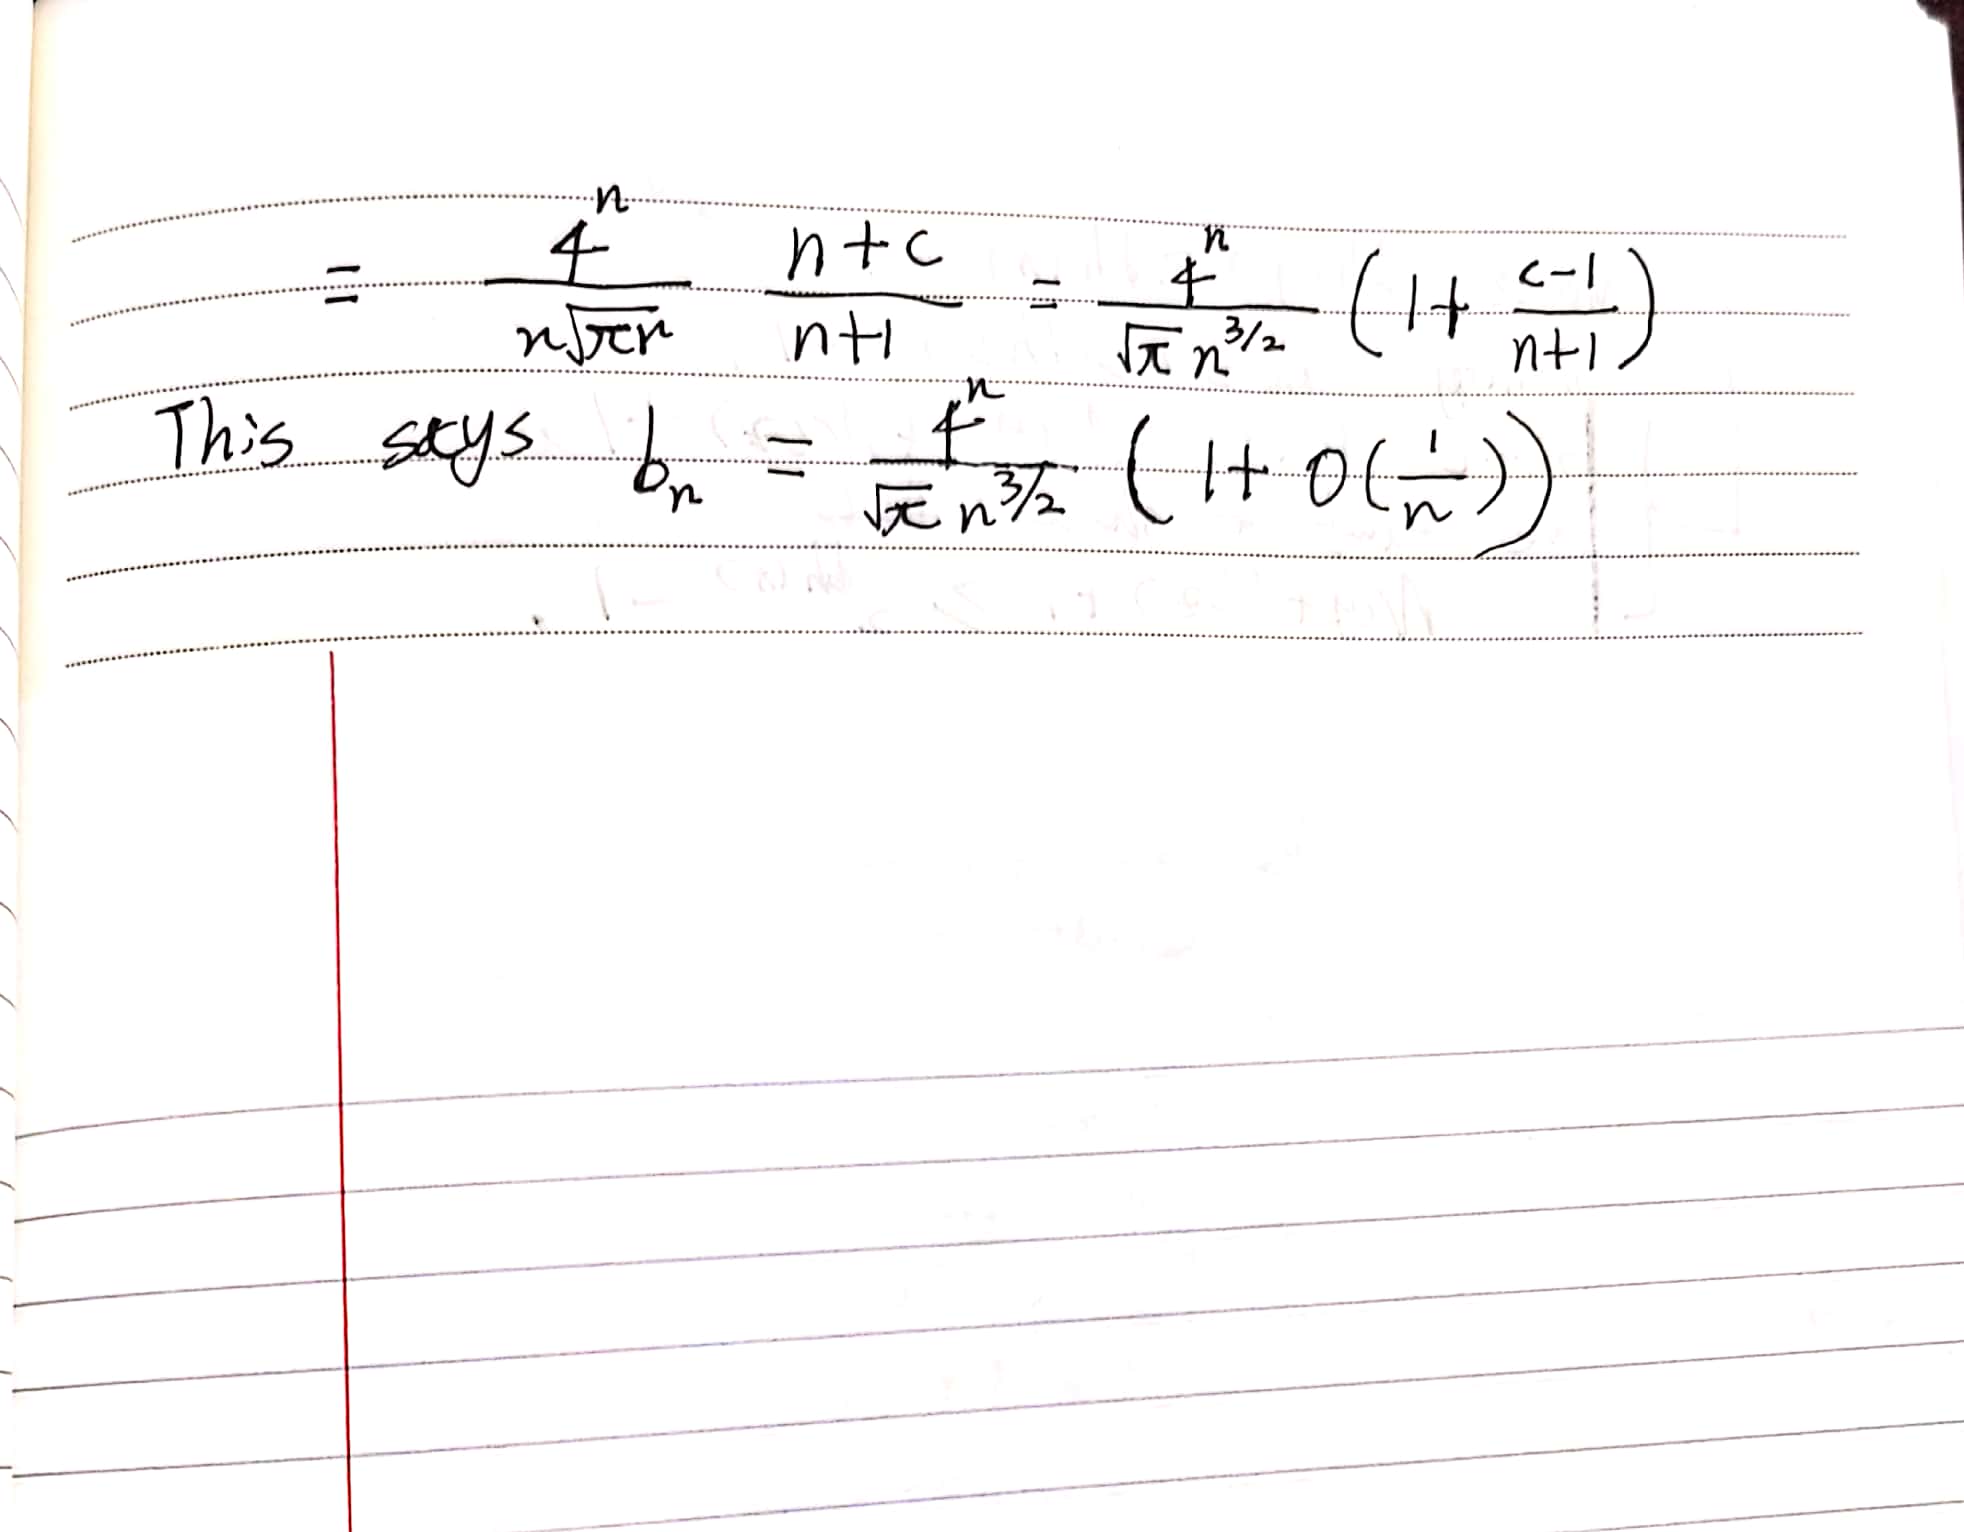 = 4^n / (n√(πn)) (n+c)/(n+1) = 4^n / (√π n^(3/2)) (1 + (c-1)/(n+1))
This says b_n = 4^n / (√π n^(3/2)) (1 + O(1/n))